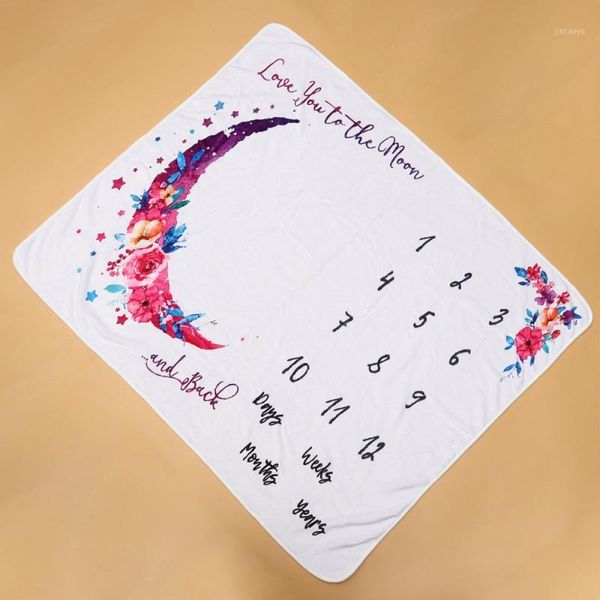 jincaiyu
Love You to the Moon
...and Back
1 2 3
4 5 6
7 8 9
10 11 12
Days Weeks
Months Years